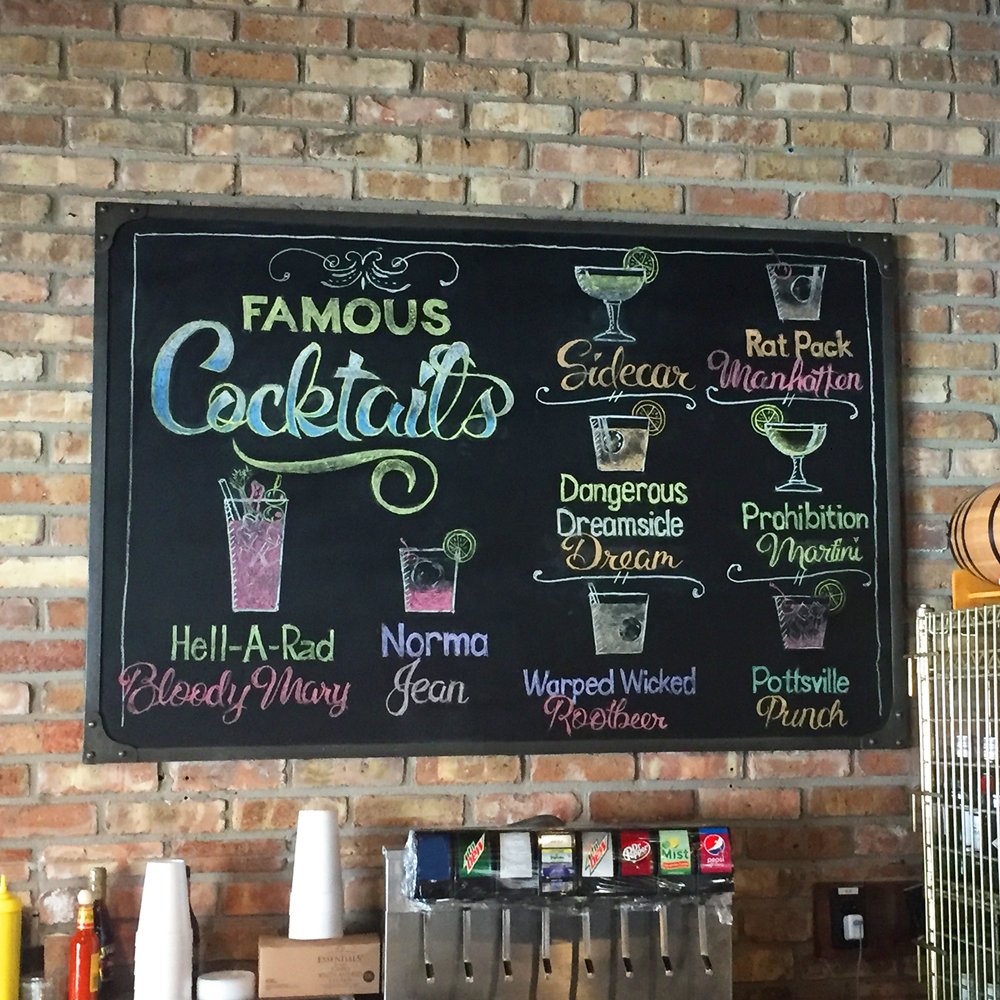 FAMOUS
Cocktails
Sidecar
Rat Pack
Manhatten
Dangerous
Dreamsicle
Dream
Prohibition
Martini
Hell-A-Rad
Bloody Mary
Norma
Jean
Warped Wicked
Rootbeer
Pottsville
Punch
Dr Pepper
Mist
pepsi
ESSENTIALS